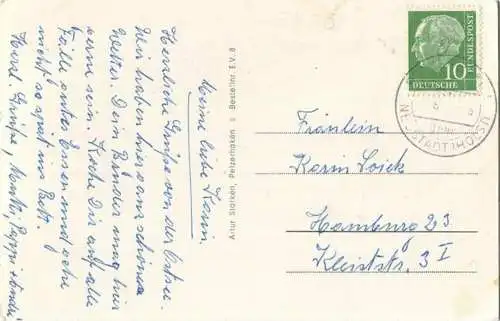 Meine liebe Karin,
Herzliche Grüße von der Ostsee.
Wir haben hier ganz schönes
Wetter. Dein Bruder mag hier
gerne sein. Koche Dir auf alle
Fälle gutes Essen und gehe
nicht so spät ins Bett.
Herzl. Grüße, Mutti, Pappi
Artur Starken, Pelzerhaken Bestellnr. E.V. 8
10
DEUTSCHE
BUNDESPOST
NEUSTADT (HOLST)
Fräulein
Karin
Hamburg 23
Kleiststr. 3 I